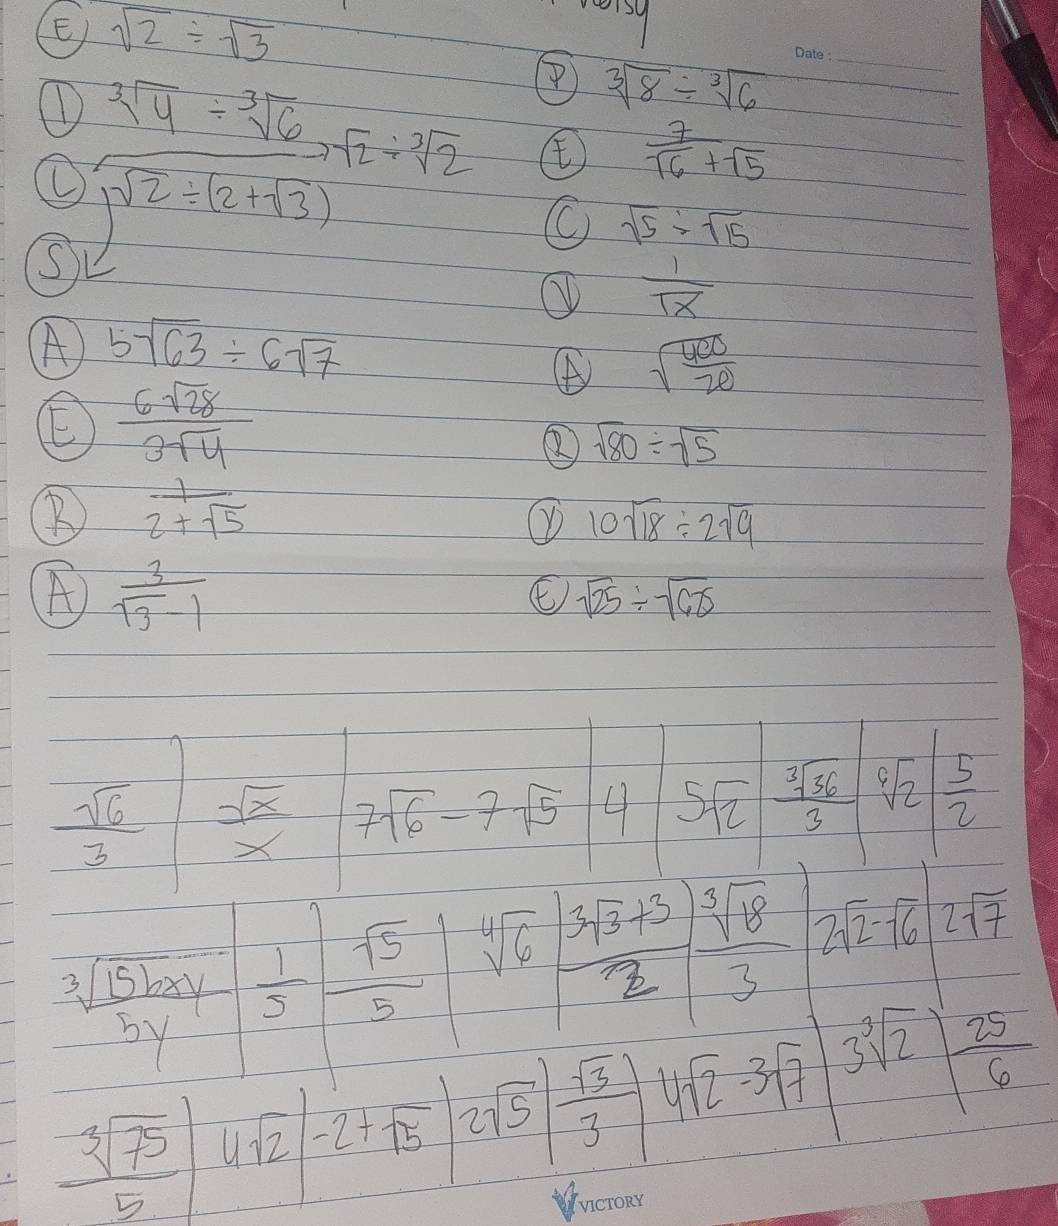 Date:
Ⓔ √2 ÷ √3
Ⓘ ∛4 ÷ ∛6
→ √2 ÷ ∛2
Ⓛ √2 ÷ (2+√3)
Ⓢ
Ⓐ 5√63 ÷ 6√7
Ⓔ 6√28 / 3√4
Ⓡ 1 / 2+√5
Ⓐ 3 / √3-1
Ⓟ ∛8 ÷ ∛6
Ⓔ 7 / √6+√5
Ⓒ √5 ÷ √15
Ⓥ 1 / √x
Ⓐ √400/20
Ⓡ √80 ÷ √5
Ⓨ 10√18 ÷ 2√9
Ⓔ √25 ÷ √625
√6/3 | √x/x | 7√6-7√5 | 4 | 5√2 | ∛36/3 | ⁶√2 | 5/2
∛15bxy/5y | 1/5 | √5/5 | ∜6 | 3√3+3/2 | ∛18/3 | 2√2-√6 | 2√7
∛75/5 | 4√2 | -2+√5 | 2√5 | √3/3 | 4√2-3√7 | 3∛2 | 25/6
VICTORY